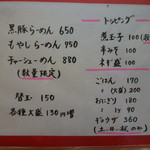 黒豚らーめん 650
もやしらーめん 750
チャーシューめん 880
(数量限定)
替玉 150
各種大盛 130円増
トッピング
煮玉子 100
辛みそ 100
ネギ盛 100
ごはん 170
〃(大盛) 200
おにぎり 180
〃 ハーフ 90
ギョウザ 360
(土.日.祝のみ)